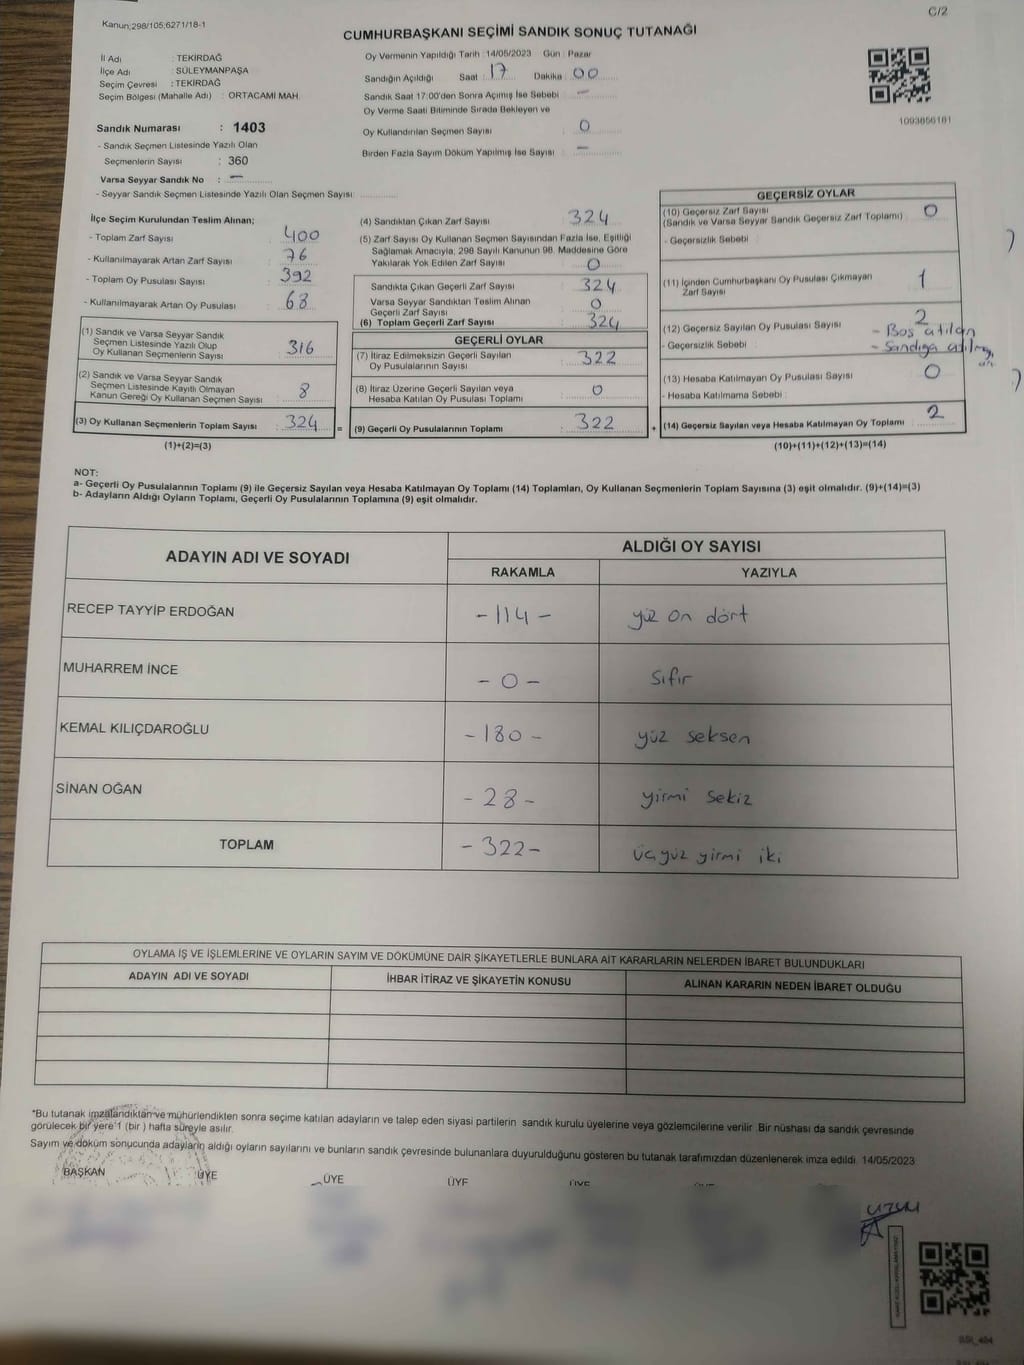 C/2
Kanun;298/105;6271/18-1
CUMHURBAŞKANI SEÇİMİ SANDIK SONUÇ TUTANAĞI
İl Adı : TEKİRDAĞ
İlçe Adı : SÜLEYMANPAŞA
Seçim Çevresi : TEKİRDAĞ
Seçim Bölgesi (Mahalle Adı) : ORTACAMİ MAH.
Sandık Numarası : 1403
- Sandık Seçmen Listesinde Yazılı Olan
Seçmenlerin Sayısı : 360
Varsa Seyyar Sandık No : —
- Seyyar Sandık Seçmen Listesinde Yazılı Olan Seçmen Sayısı:
Oy Vermenin Yapıldığı Tarih :14/05/2023 Gün : Pazar
Sandığın Açıldığı Saat : 17 Dakika : 00
Sandık Saat 17:00'den Sonra Açımış İse Sebebi : —
Oy Verme Saati Bitiminde Sırada Bekleyen ve
Oy Kullandırılan Seçmen Sayısı : 0
Birden Fazla Sayım Döküm Yapılmış İse Sayısı : —
1093856101
İlçe Seçim Kurulundan Teslim Alınan;
- Toplam Zarf Sayısı : 400
- Kullanılmayarak Artan Zarf Sayısı : 76
- Toplam Oy Pusulası Sayısı : 392
- Kullanılmayarak Artan Oy Pusulası : 68
(1) Sandık ve Varsa Seyyar Sandık
Seçmen Listesinde Yazılı Olup
Oy Kullanan Seçmenlerin Sayısı : 316
(2) Sandık ve Varsa Seyyar Sandık
Seçmen Listesinde Kayıtlı Olmayan
Kanun Gereği Oy Kullanan Seçmen Sayısı : 8
(3) Oy Kullanan Seçmenlerin Toplam Sayısı : 324 =
(1)+(2)=(3)
(4) Sandıktan Çıkan Zarf Sayısı : 324
(5) Zarf Sayısı Oy Kullanan Seçmen Sayısından Fazla İse, Eşitliği
Sağlamak Amacıyla, 298 Sayılı Kanunun 98. Maddesine Göre
Yakılarak Yok Edilen Zarf Sayısı : 0
Sandıkta Çıkan Geçerli Zarf Sayısı : 324
Varsa Seyyar Sandıktan Teslim Alınan
Geçerli Zarf Sayısı : 0
(6) Toplam Geçerli Zarf Sayısı : 324
GEÇERLİ OYLAR
(7) İtiraz Edilmeksizin Geçerli Sayılan
Oy Pusulalarının Sayısı : 322
(8) İtiraz Üzerine Geçerli Sayılan veya
Hesaba Katılan Oy Pusulası Toplamı : 0
(9) Geçerli Oy Pusulalarının Toplamı : 322 +
GEÇERSİZ OYLAR
(10) Geçersiz Zarf Sayısı
(Sandık ve Varsa Seyyar Sandık Geçersiz Zarf Toplamı) : 0
- Geçersizlik Sebebi :
(11) İçinden Cumhurbaşkanı Oy Pusulası Çıkmayan
Zarf Sayısı : 1
(12) Geçersiz Sayılan Oy Pusulası Sayısı : 2
- Geçersizlik Sebebi : - Boş atılan
- Sandığa
(13) Hesaba Katılmayan Oy Pusulası Sayısı : 0
- Hesaba Katılmama Sebebi :
(14) Geçersiz Sayılan veya Hesaba Katılmayan Oy Toplamı : 2
(10)+(11)+(12)+(13)=(14)
NOT:
a- Geçerli Oy Pusulalarının Toplamı (9) ile Geçersiz Sayılan veya Hesaba Katılmayan Oy Toplamı (14) Toplamları, Oy Kullanan Seçmenlerin Toplam Sayısına (3) eşit olmalıdır. (9)+(14)=(3)
b- Adayların Aldığı Oyların Toplamı, Geçerli Oy Pusulalarının Toplamına (9) eşit olmalıdır.
ADAYIN ADI VE SOYADI ALDIĞI OY SAYISI
RAKAMLA YAZIYLA
RECEP TAYYİP ERDOĞAN -114- yüz on dört
MUHARREM İNCE -0- sıfır
KEMAL KILIÇDAROĞLU -180- yüz seksen
SİNAN OĞAN -28- yirmi sekiz
TOPLAM -322- üçyüz yirmi iki
OYLAMA İŞ VE İŞLEMLERİNE VE OYLARIN SAYIM VE DÖKÜMÜNE DAİR ŞİKAYETLERLE BUNLARA AİT KARARLARIN NELERDEN İBARET BULUNDUKLARI
ADAYIN ADI VE SOYADI İHBAR İTİRAZ VE ŞİKAYETİN KONUSU ALINAN KARARIN NEDEN İBARET OLDUĞU
*Bu tutanak imzalandıktan ve mühürlendikten sonra seçime katılan adayların ve talep eden siyasi partilerin sandık kurulu üyelerine veya gözlemcilerine verilir. Bir nüshası da sandık çevresinde
görülecek bir yere 1 (bir ) hafta süreyle asılır.
Sayım ve döküm sonucunda adayların aldığı oyların sayılarını ve bunların sandık çevresinde bulunanlara duyurulduğunu gösteren bu tutanak tarafımızdan düzenlenerek imza edildi. 14/05/2023
BAŞKAN ÜYE ÜYE ÜYE ÜYE